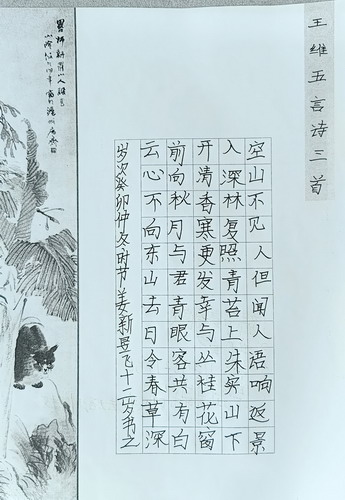 王维五言诗三首
空山不见人但闻人语响返景
入深林复照青苔上朱实山下
开清香寒更发幸与丛桂花窗
前向秋月与君青眼客共有白
云心不向东山去日令春草深
岁次癸卯仲冬时节姜新昱飞十二岁书之